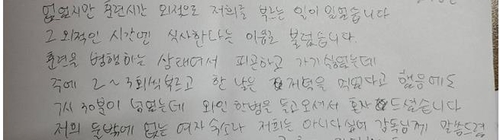 없었지만 훈련시간 외적으로 저희를 부르는 일이 있었습니다
그 외적인 시간엔 식사한다는 이유로 불렀습니다
훈련을 병행하는 상태여서 피곤하고 가기 싫었는데
주에 2~3회씩 부르고 한 날은 저녁을 먹었다고 했음에도
7시 30분이 넘었는데 와인 한병을 들고오셔서 혼자 드셨습니다
저희 숙박에 없는 여자숙소나 저희는 아니다싶어 감독님께 말씀드렸